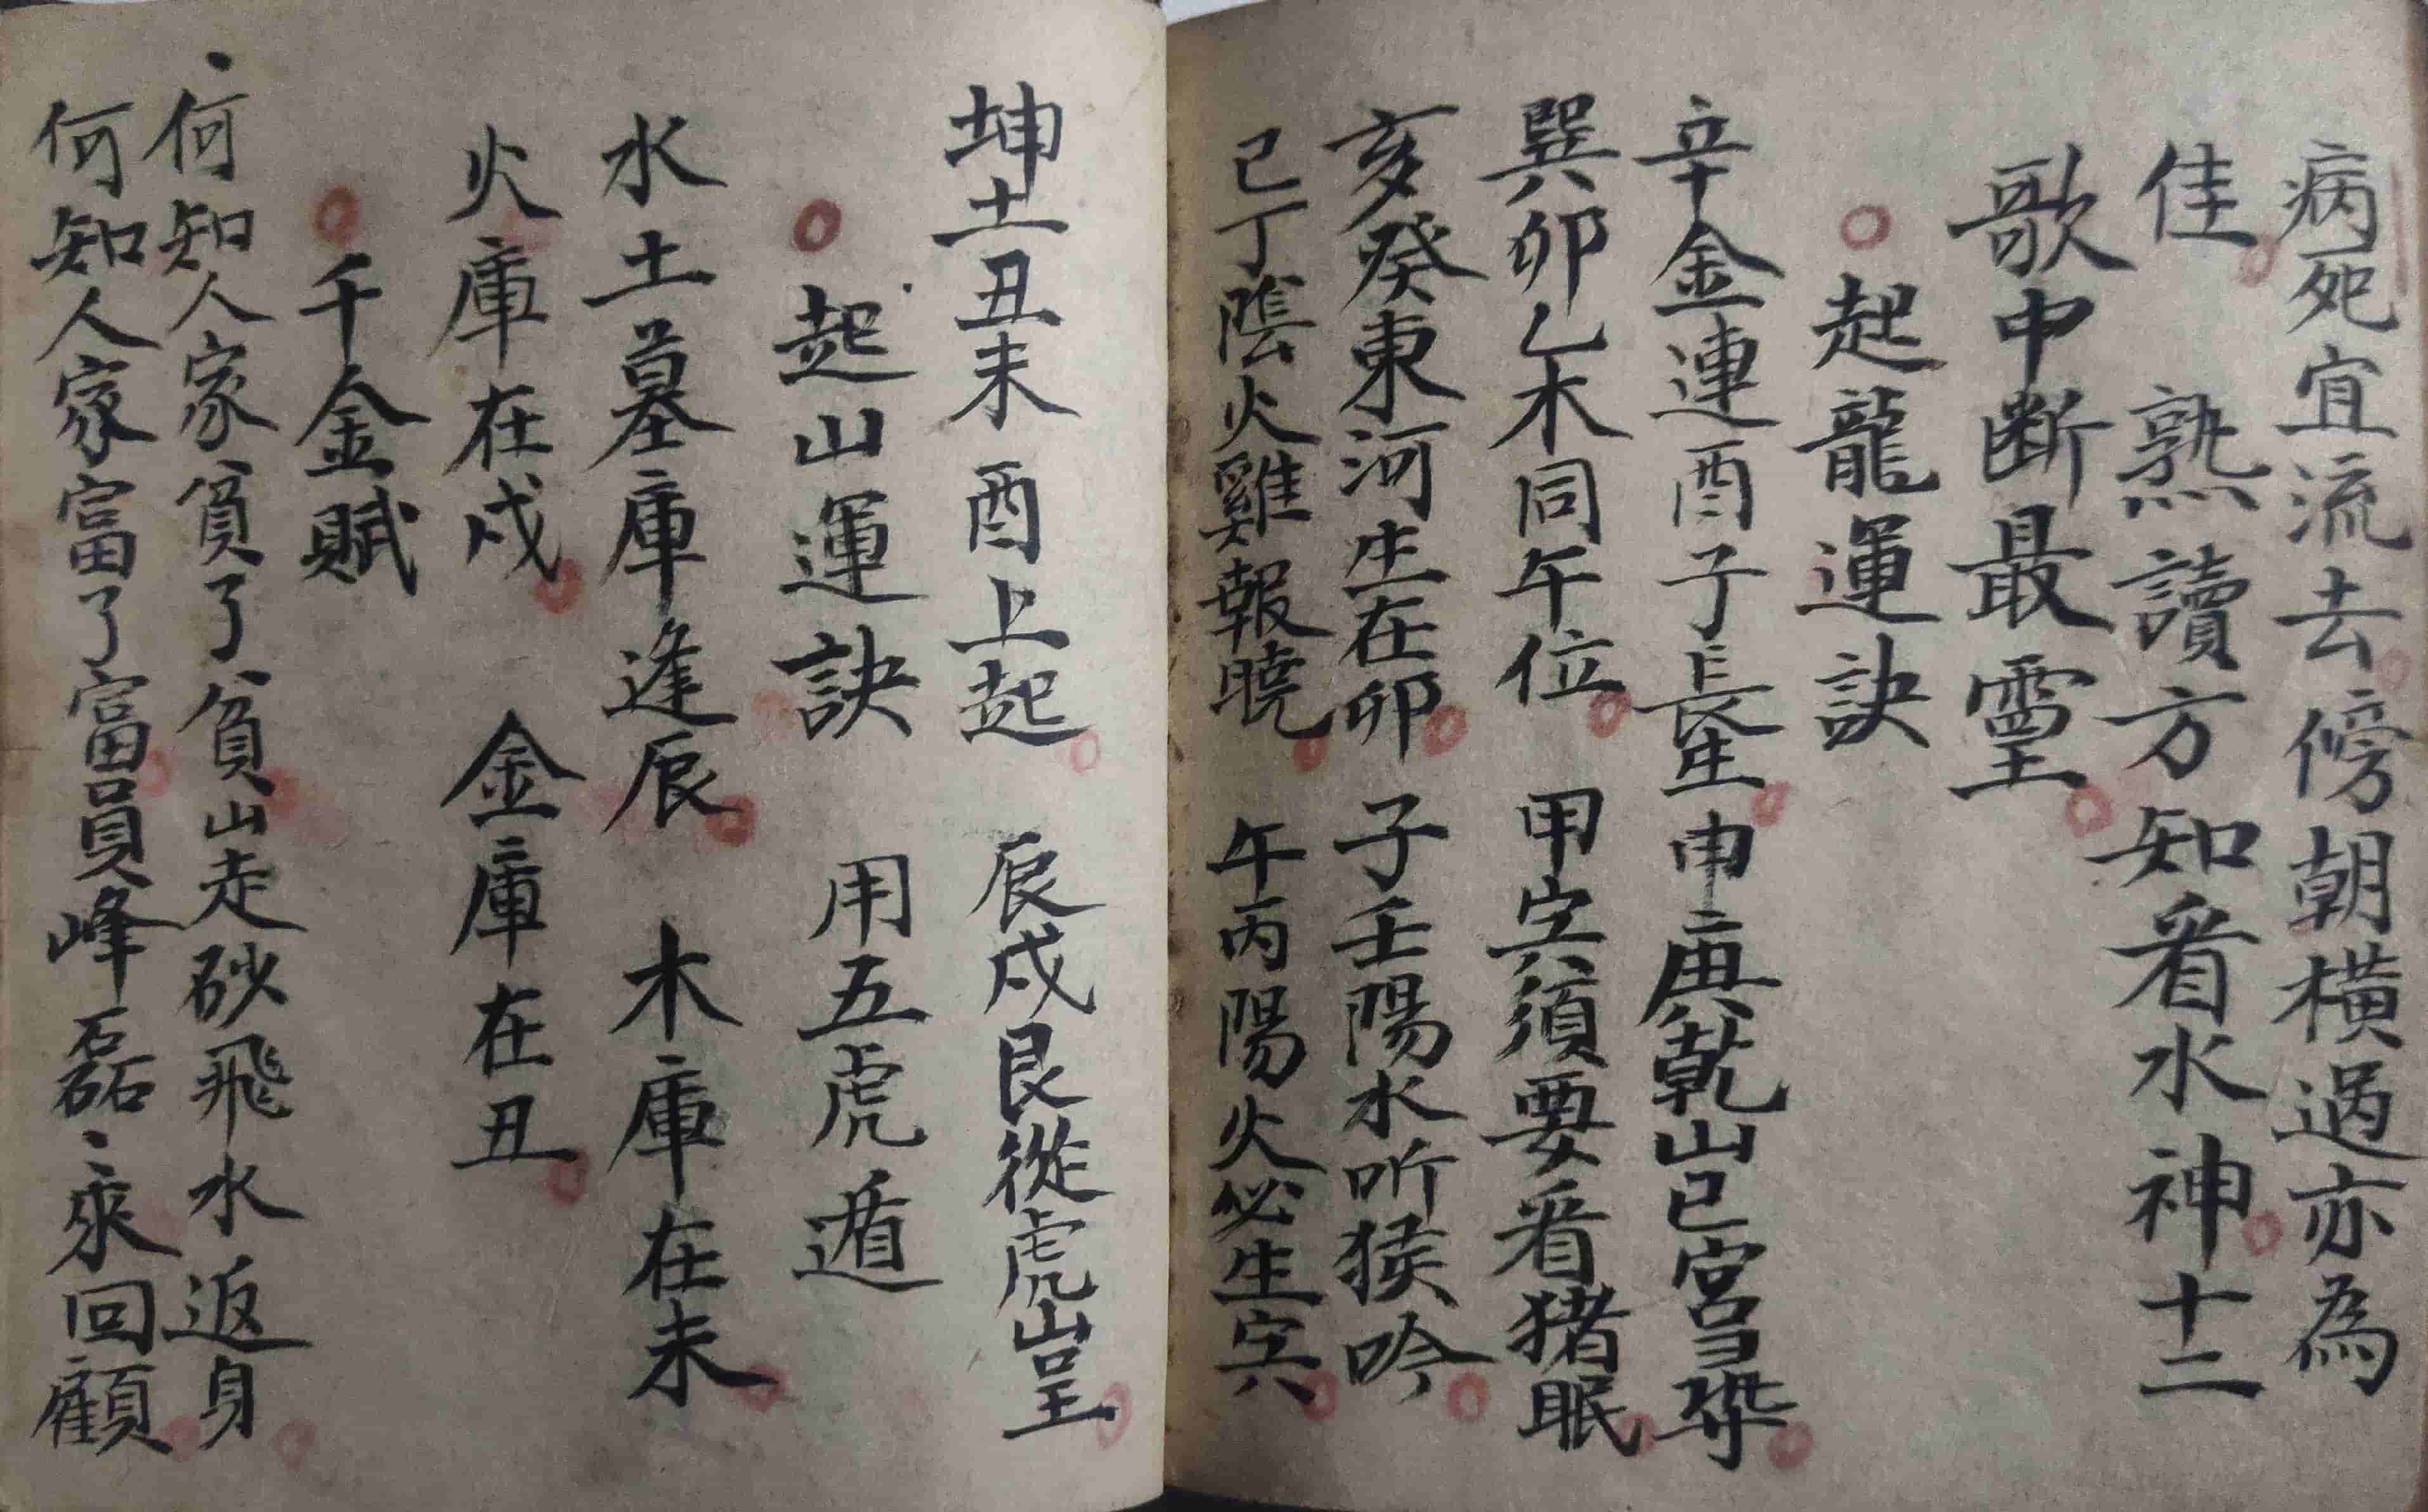 病死宜流去傍朝橫過亦為
佳　熟讀方知看水神十二
歌中斷最靈
起龍運訣
辛金連酉子長生申庚乾山巳宮尋
巽卯乙木同午位甲寅須要看猪眠
亥癸東河生在卯子壬陽水听猴吟
巳丁陰火雞報曉午丙陽火必生寅
坤土丑未酉上起辰戌艮從虎山呈
起山運訣　用五虎遁
水土墓庫逢辰　木庫在未
火庫在戌　金庫在丑
千金賦
何知人家貧了貧山走砂飛水返身
何知人家富了富員峰磊、來回顧